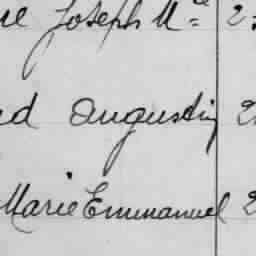 Joseph Mce 2
Augustin 2
Marie Emmanuel 2